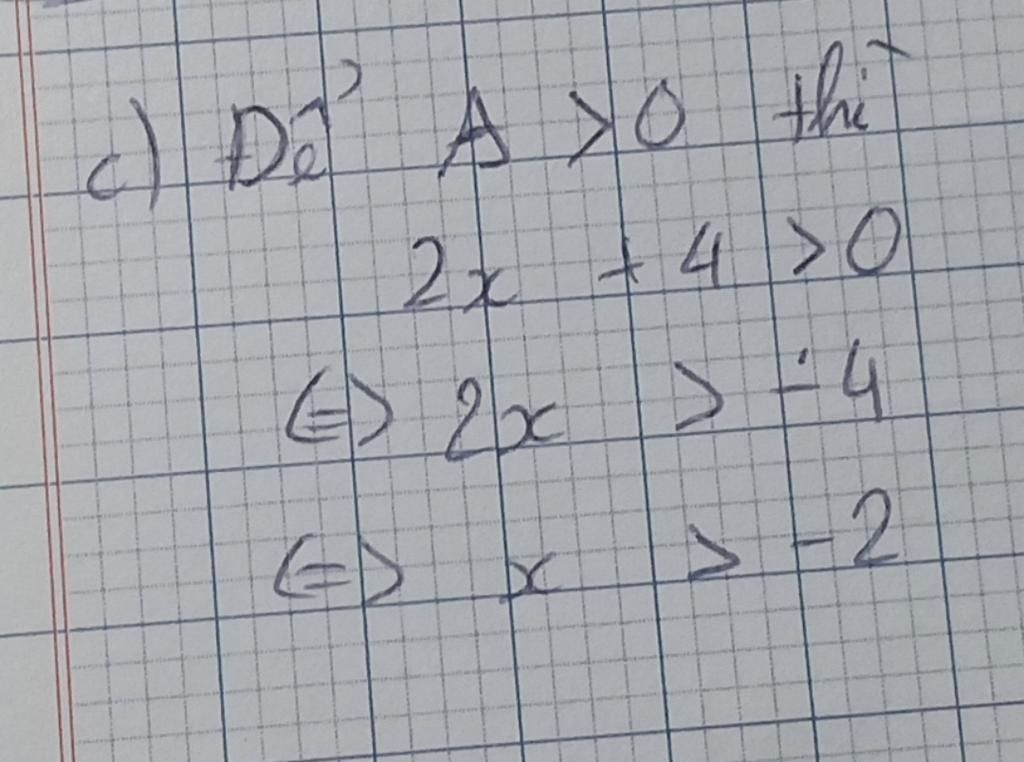 c) Để A > 0 thì
2x + 4 > 0
<=> 2x > -4
<=> x > -2